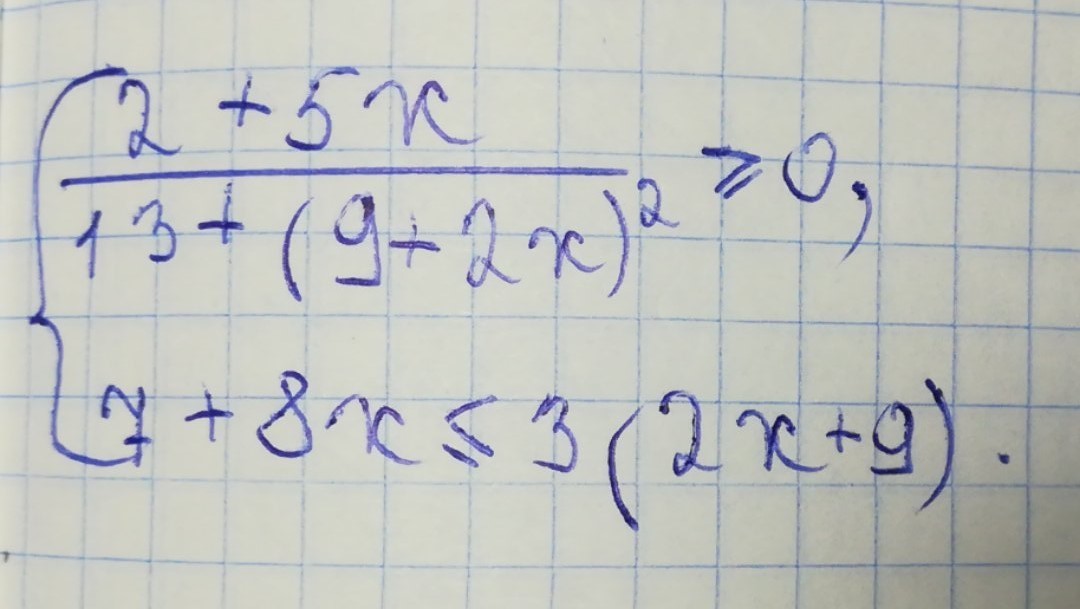 2 + 5x
13 + (9 + 2x)² ⩾ 0,
7 + 8x ≤ 3(2x + 9).